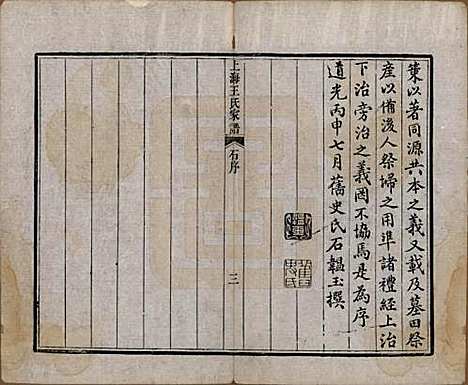 策以著同源共本之義又載及墓田祭
產以備後人祭埽之用準諸禮經上治
下治旁治之義罔不協焉是為序
道光丙申七月舊史氏石韞玉撰
上海王氏家譜
石序
三